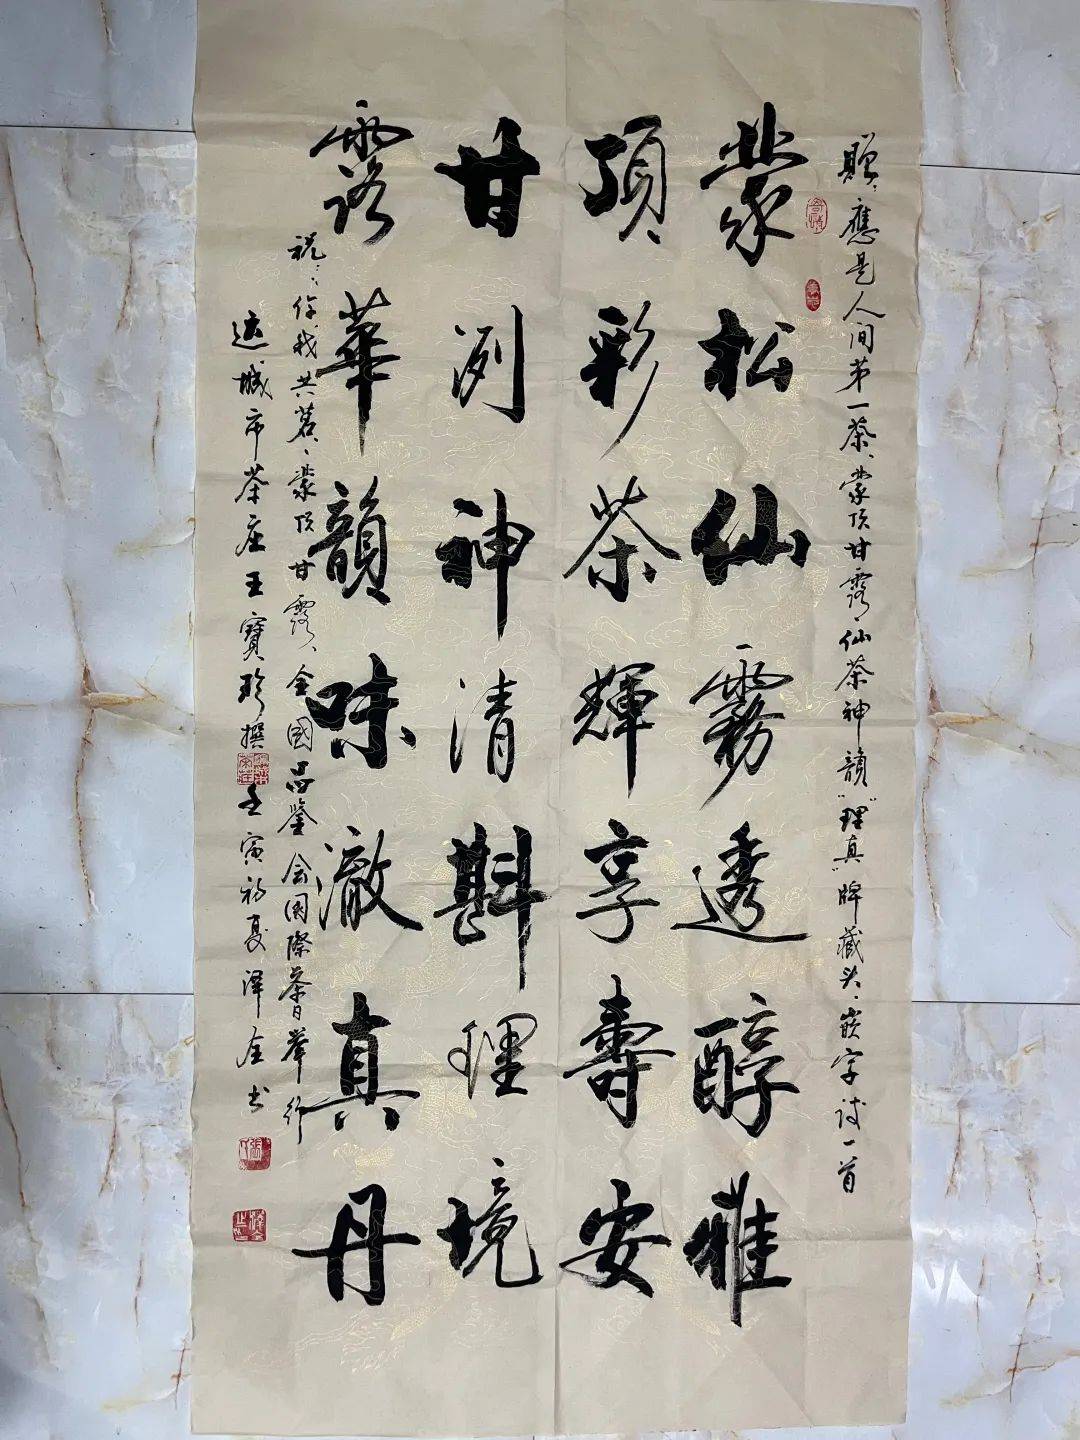 贈：應是人间第一茶、蒙顶甘露、仙茶神韻“理真”牌藏头、嵌字诗一首
蒙松仙霧透醇雅
頂彩茶輝享壽安
甘洌神清斟理境
露華韻味澈真丹
祝：你我共茗、蒙顶甘露、全國品鉴会国際 举行
城市茶座王寳珍撰 壬寅初夏泽全书